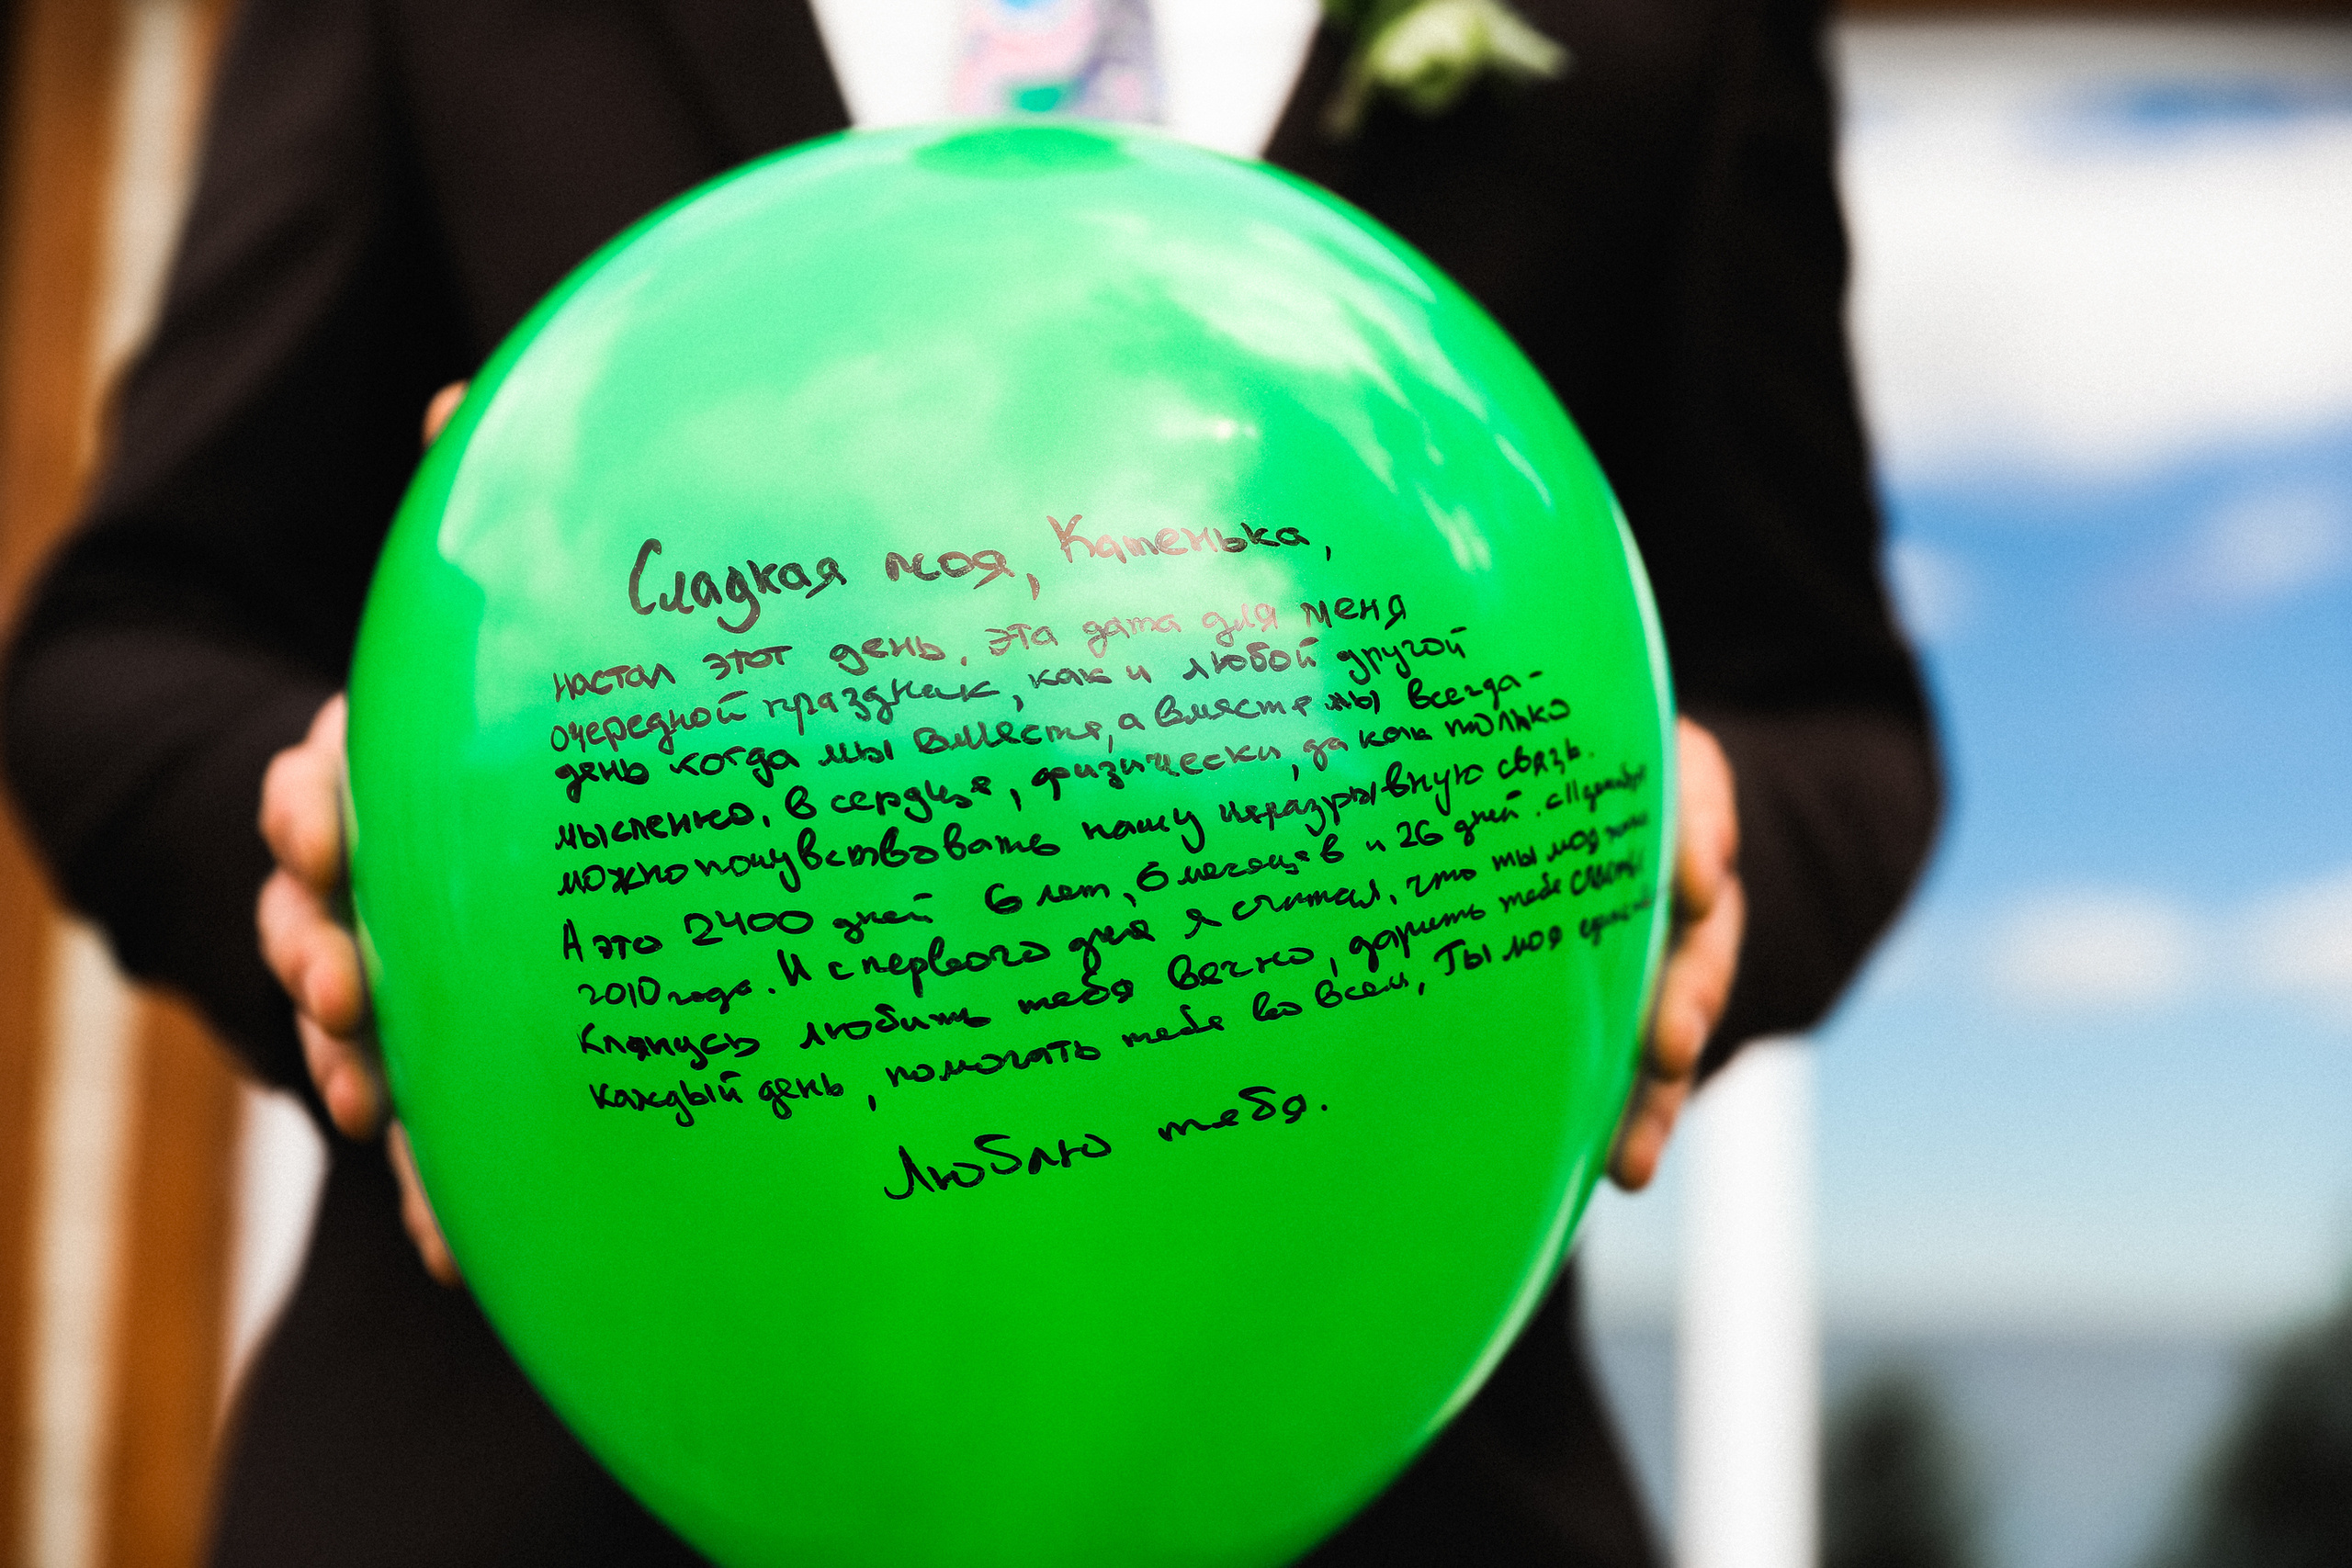 Сладкая моя, Катенька,
настал этот день, эта дата для меня
очередной праздник, как и любой другой
день когда мы вместе, а вместе мы всегда-
мысленно, в сердце, физически, да как только
можно почувствовать нашу неразрывную связь.
А это 2400 дней 6 лет, 6 месяцев и 26 дней. с 11 декабря
2010 года. И с первого дня я считал, что ты моя жена
Клянусь любить тебя вечно, дарить тебе счастье
каждый день, помогать тебе во всем, Ты моя
Люблю тебя.